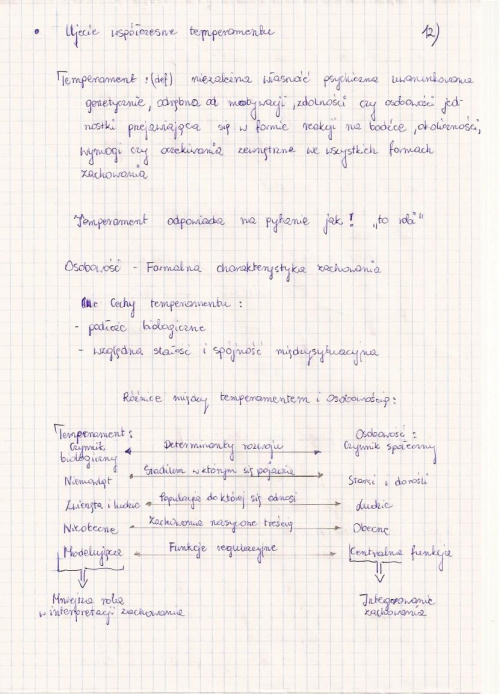 • Ujęcie współczesne temperamentu 12)
Temperament : (def) niezależna własność psychiczna uwarunkowana
genetycznie, odrębna od motywacji, zdolności czy osobowości jed-
nostki przejawiająca się w formie reakcji na bodźce, okoliczności,
wymogi czy oczekiwania zewnętrzne we wszystkich formach
zachowania
Temperament odpowiada na pytanie jak! „to robi"
Osobowość - Formalna charakterystyka zachowania
Cechy temperamentu :
- podłoże biologiczne
- względna stałość i spójność międzysytuacyjna
Różnice między temperamentem i osobowością:
Temperament: Osobowość:
Czynnik biologiczny Determinanty rozwoju Czynnik społeczny
Niemowląt Stadium w którym się pojawia Starsi i dorośli
Zwierzęta i ludzie Populacja do której się odnosi Ludzie
Nieobecne Zachowania nasycone treścią Obecne
Modelująca Funkcje regulacyjne Centralna funkcja
Mniejsza rola Integrowanie
w interpretacji zachowania zachowania